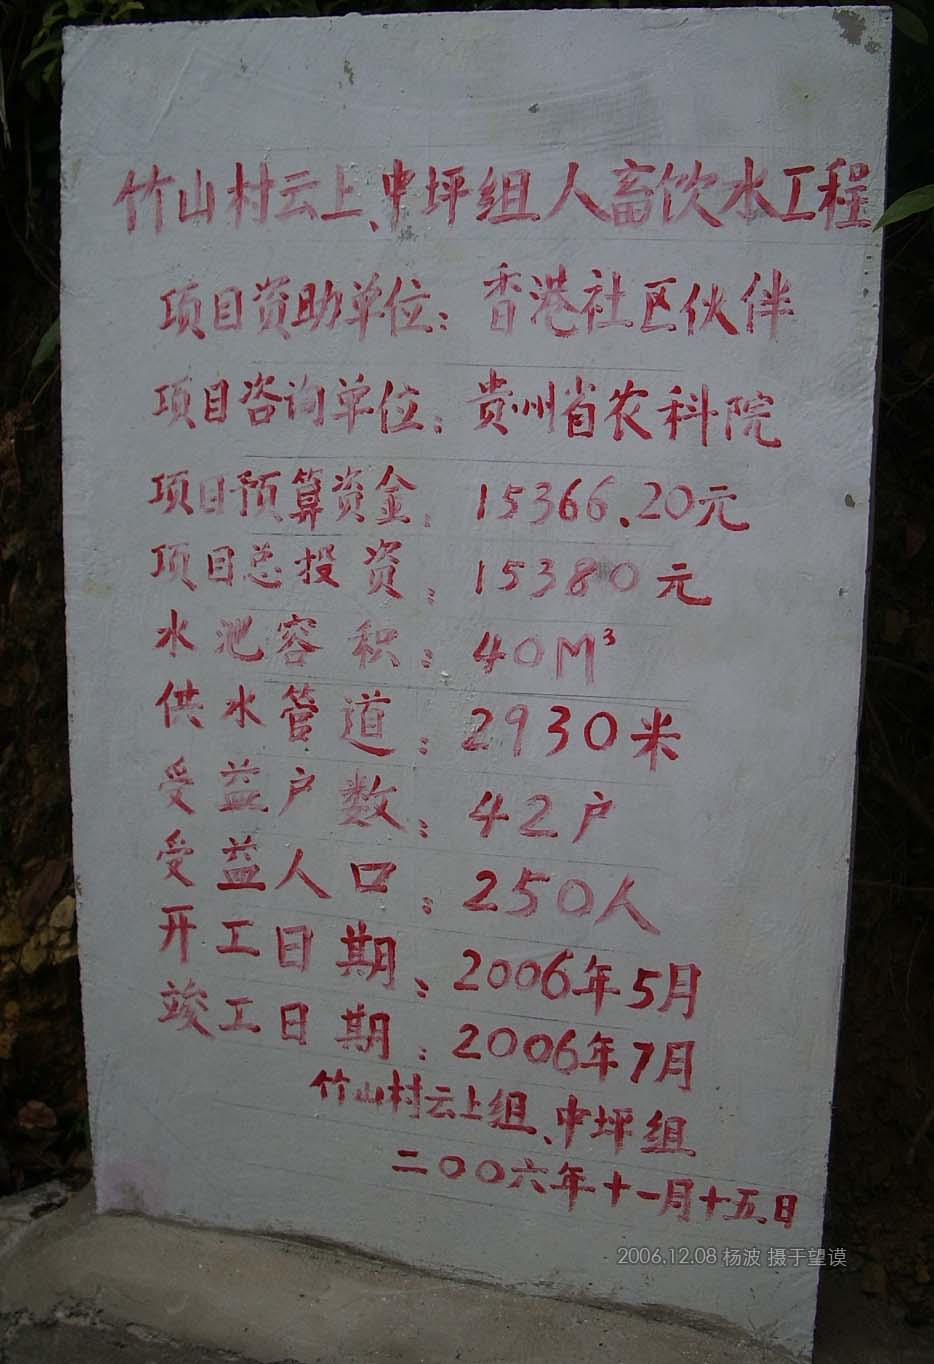 竹山村云上、中坪组人畜饮水工程
项目资助单位：香港社区伙伴
项目咨询单位：贵州省农科院
项目预算资金：15366.20元
项目总投资：15380元
水池容积：40M³
供水管道：2930米
受益户数：42户
受益人口：250人
开工日期：2006年5月
竣工日期：2006年7月
竹山村云上组、中坪组
二00六年十一月十五日
2006.12.08 杨波 摄于望谟